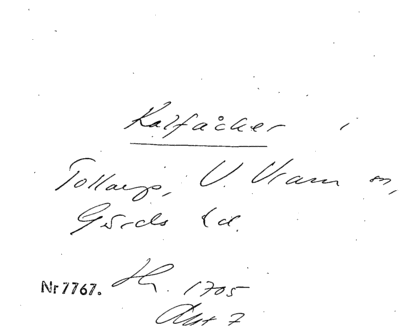 Kalfåcker i
Tollarp, V. Vram sn,
Gärds hd.
Nr 7767. 1705
Akt 7